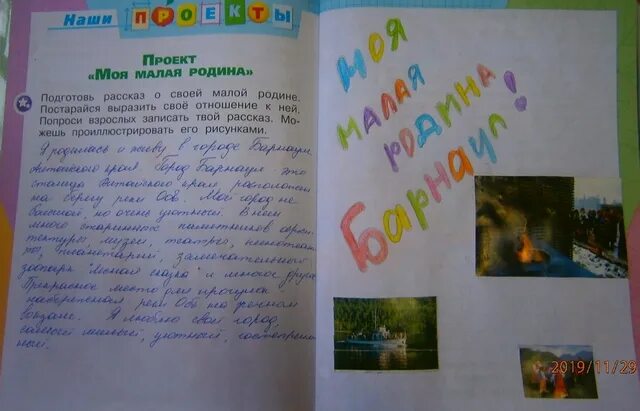 Наши ПРОЕКТЫ
ПРОЕКТ
«МОЯ МАЛАЯ РОДИНА»
Подготовь рассказ о своей малой родине.
Постарайся выразить своё отношение к ней.
Попроси взрослых записать твой рассказ. Мо-
жешь проиллюстрировать его рисунками.
Я родилась и живу в городе Барнауле
Алтайского края. Город Барнаул - это
столица Алтайского края расположен
на берегу реки Обь. Мой город не
большой, но очень уютный. В нём
много старинных памятников архи-
тектуры, музеи, театры, кинотеат-
ры, планетарий, замечательного
зоопарк "Лесная сказка" и многое другое
Прекрасное место для прогулок
набережная реки Обь на речном
вокзале. Я люблю свой город,
самый милый, уютный, гостеприим-
ный.
Моя
малая
родина
Барнаул!
2019/11/29